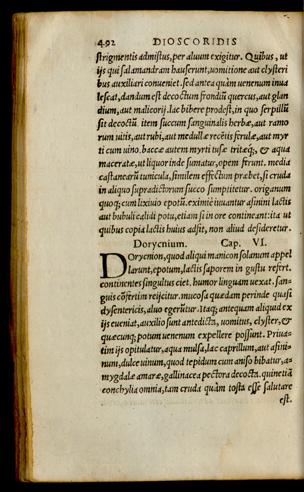 492 DIOSCORIDIS
strigmentis admistus, per aluum exigitur. Quibus, ut
ijs qui salamandram hauserunt, uomitione aut clysteri
bus auxiliari conueniet. sed antea quàm uenenum inua
lescat, dandum est decoctum frondiũ quercus, aut glan
dium, aut malicorij. lac bibere prodest, in quo serpillũ
sit decoctũ. item succum sanguinalis herbæ, aut ramo
rum uitis, aut rubi, aut medullæ recẽtis ferulæ, aut myr
ti cum uino. baccæ autem myrti tusæ tritæq́;, & aqua
maceratæ, ut liquor inde sumatur, opem ferunt. media
castanearũ tunicula, similem effectum præbet, si cruda
in aliquo supradictorum succo sumptitetur. origanum
quoq; cum lixiuio epotũ. eximiè iuuantur asinini lactis
aut bubuli calidi potu, etiam si in ore contineant: ita ut
quibus copia lactis huius adsit, non aliud desideretur.
Dorycnium. Cap. VI.
DOrycnion, quod aliqui manicon solanum appel
larunt, epotum, lactis saporem in gustu refert.
continentes singultus ciet. humor linguam uexat. san-
guis cõfertim reijcitur. mucosa quædam perinde quasi
dysentericis, aluo egeritur. Itaq; antequam aliquid ex
ijs eueniat, auxilio sunt antedicta, uomitus, clyster, &
quæcunq; potum uenenum expellere possunt. Priua-
tim ijs opitulatur, aqua mulsa, lac caprillum, aut asini-
num, dulce uinum, quod tepidum cum aniso bibatur, a-
mygdalæ amaræ, gallinacea pectora decocta. quinetiã
conchylia omnia, tam cruda quàm tosta esse salutare
est.